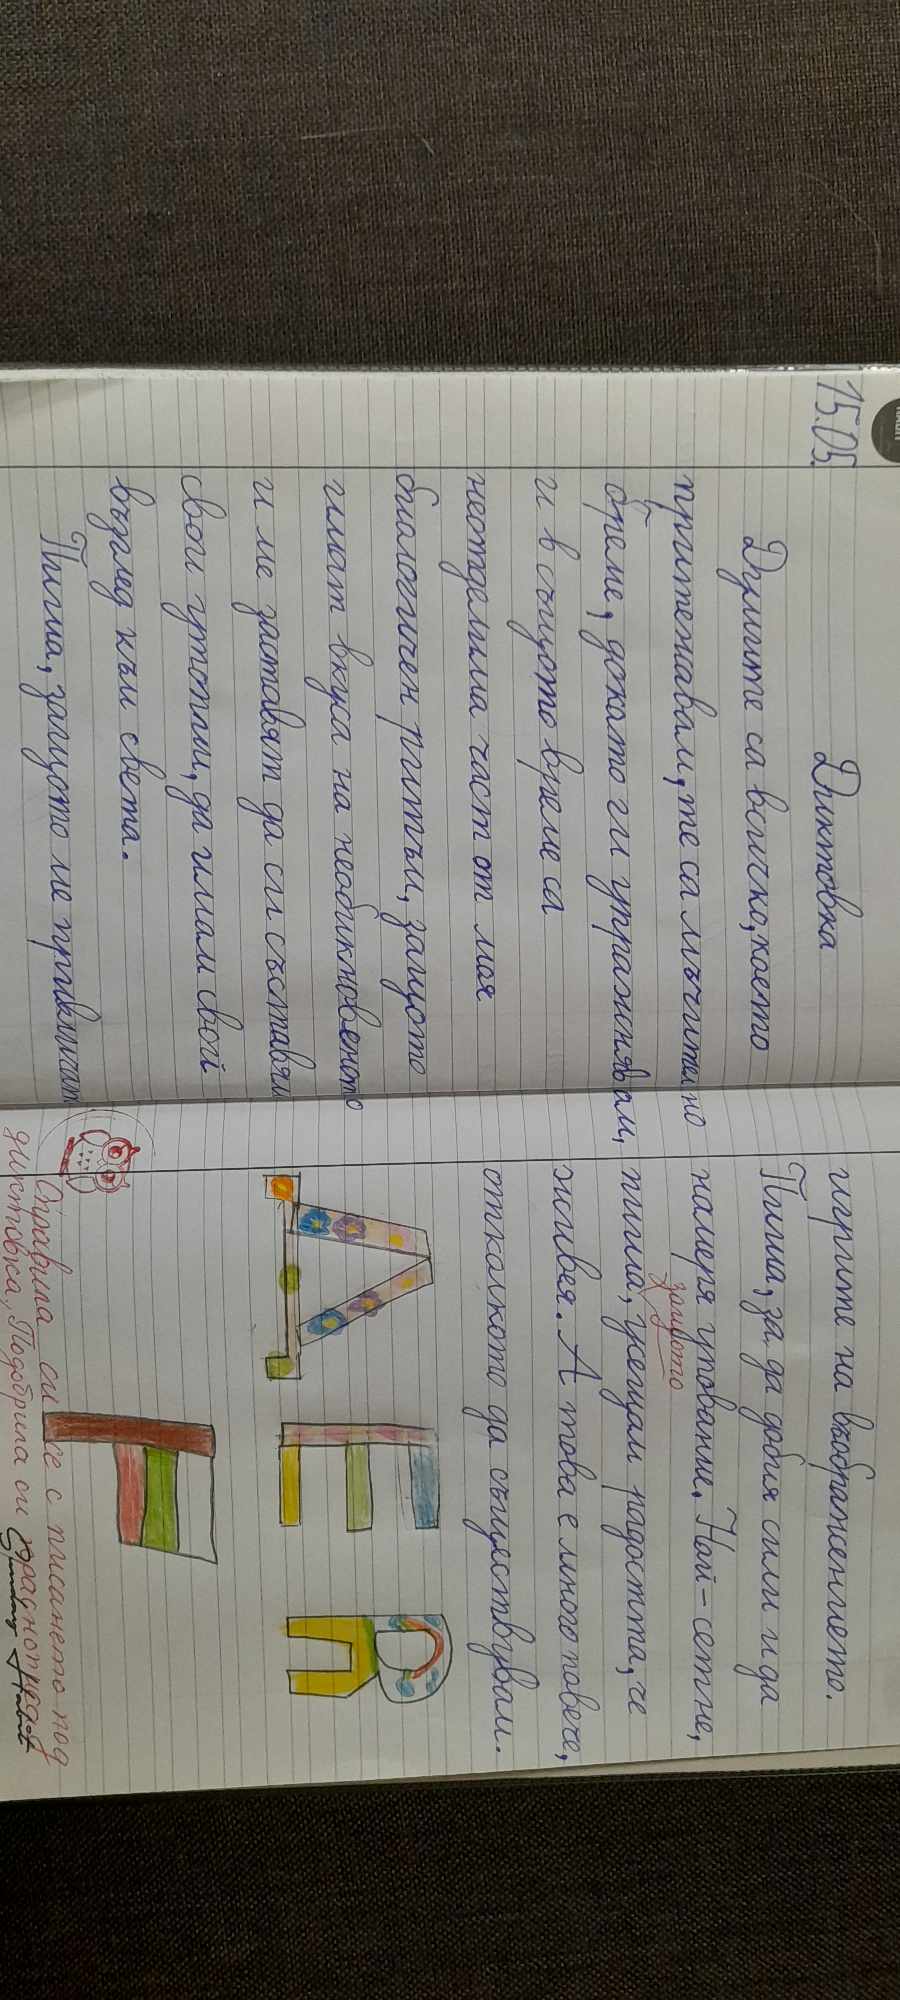 15.05.
Диктовка
Думите са всичко, което
притежавам, те са мъчително
бреме, докато ги упражнявам,
и в същото време са
неотделима част от моя
биологичен ритъм, защото
имат вкуса на необикновеното
и ме заставят да си съставям
свои утопии, да имам свой
възглед към света.
Пиша, защото ме привличат
игрите на въображението.
Пиша, за да добия сили и да
намеря упование. Най-сетне,
защото
пиша, усещам радостта, че
живея. А това е много повече,
отколкото да съществувам.
Справила си се с писането под
диктовка. Подобрила си